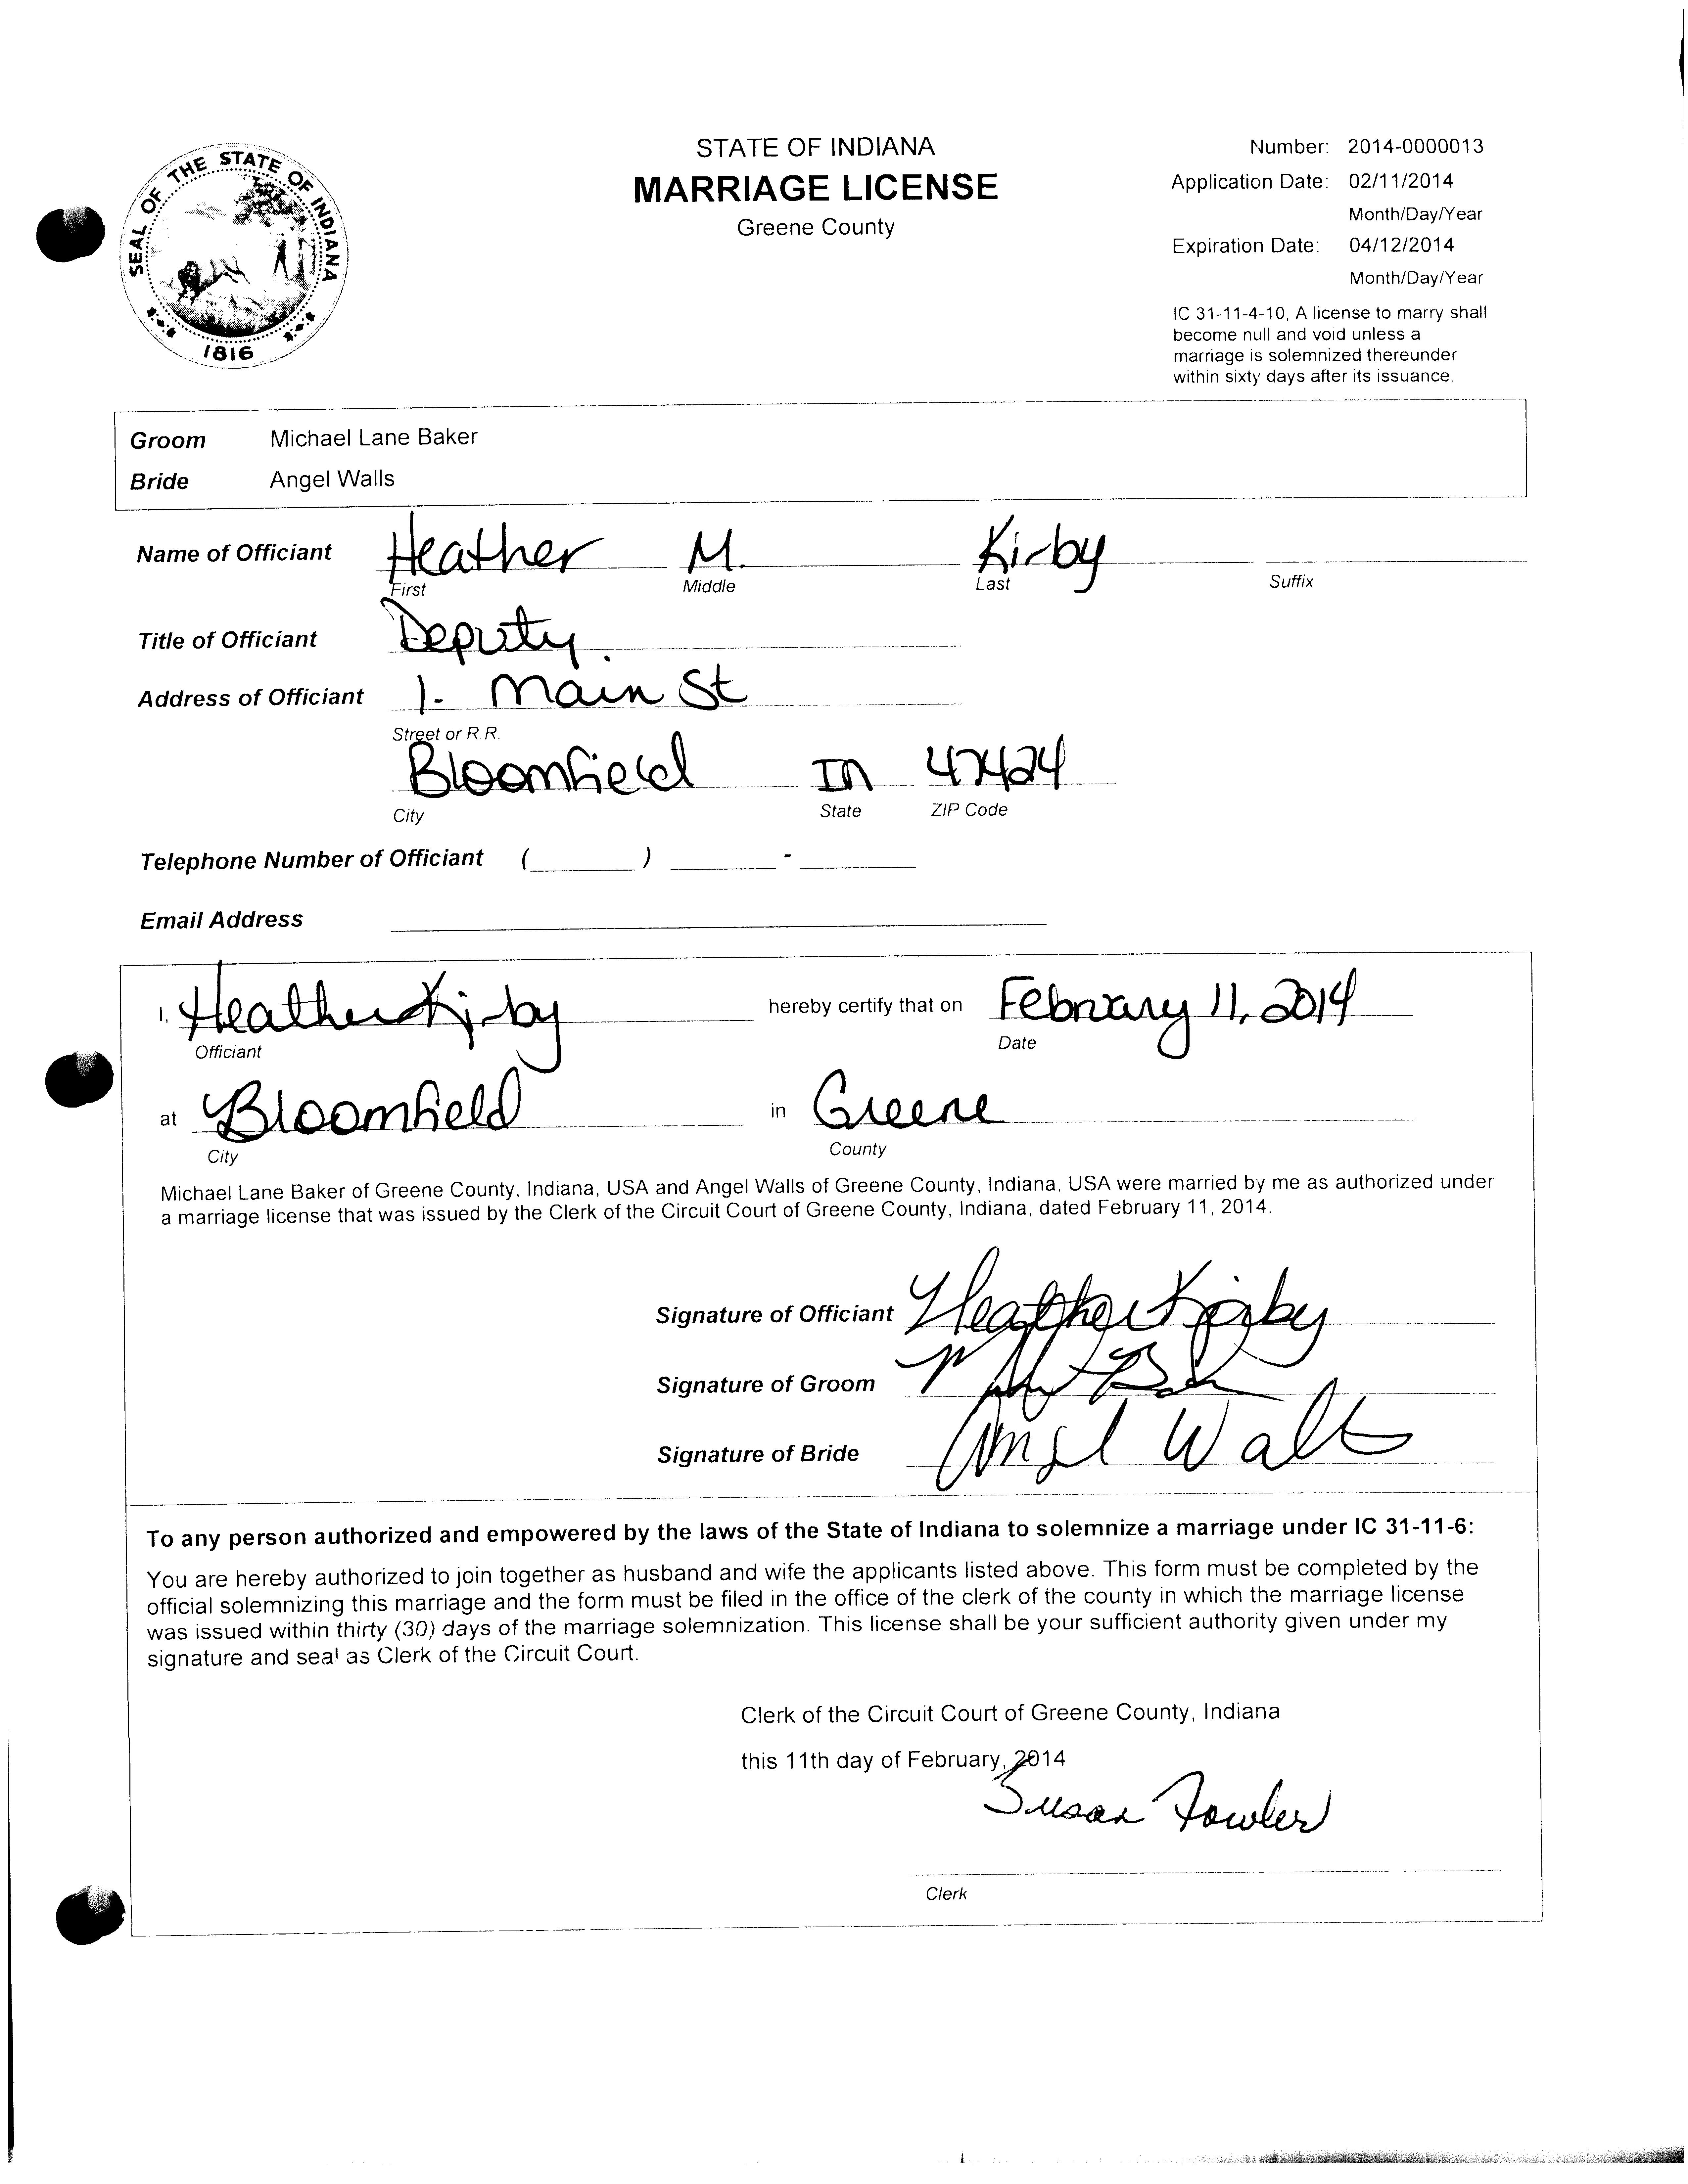 SEAL OF THE STATE OF INDIANA
1816
STATE OF INDIANA
MARRIAGE LICENSE
Greene County
Number: 2014-0000013
Application Date: 02/11/2014
Month/Day/Year
Expiration Date: 04/12/2014
Month/Day/Year
IC 31-11-4-10, A license to marry shall
become null and void unless a
marriage is solemnized thereunder
within sixty days after its issuance.
Groom Michael Lane Baker
Bride Angel Walls
Name of Officiant Heather M. Kirby
First Middle Last Suffix
Title of Officiant Deputy
Address of Officiant 1. Main St
Street or R.R.
Bloomfield IN 47424
City State ZIP Code
Telephone Number of Officiant ( ) -
Email Address
I, Heather Kirby hereby certify that on February 11, 2014
Officiant Date
at Bloomfield in Greene
City County
Michael Lane Baker of Greene County, Indiana, USA and Angel Walls of Greene County, Indiana, USA were married by me as authorized under
a marriage license that was issued by the Clerk of the Circuit Court of Greene County, Indiana, dated February 11, 2014.
Signature of Officiant Heather Kirby
Signature of Groom
Signature of Bride Angel Walls
To any person authorized and empowered by the laws of the State of Indiana to solemnize a marriage under IC 31-11-6:
You are hereby authorized to join together as husband and wife the applicants listed above. This form must be completed by the
official solemnizing this marriage and the form must be filed in the office of the clerk of the county in which the marriage license
was issued within thirty (30) days of the marriage solemnization. This license shall be your sufficient authority given under my
signature and seal as Clerk of the Circuit Court.
Clerk of the Circuit Court of Greene County, Indiana
this 11th day of February, 2014
Susan Fowler
Clerk